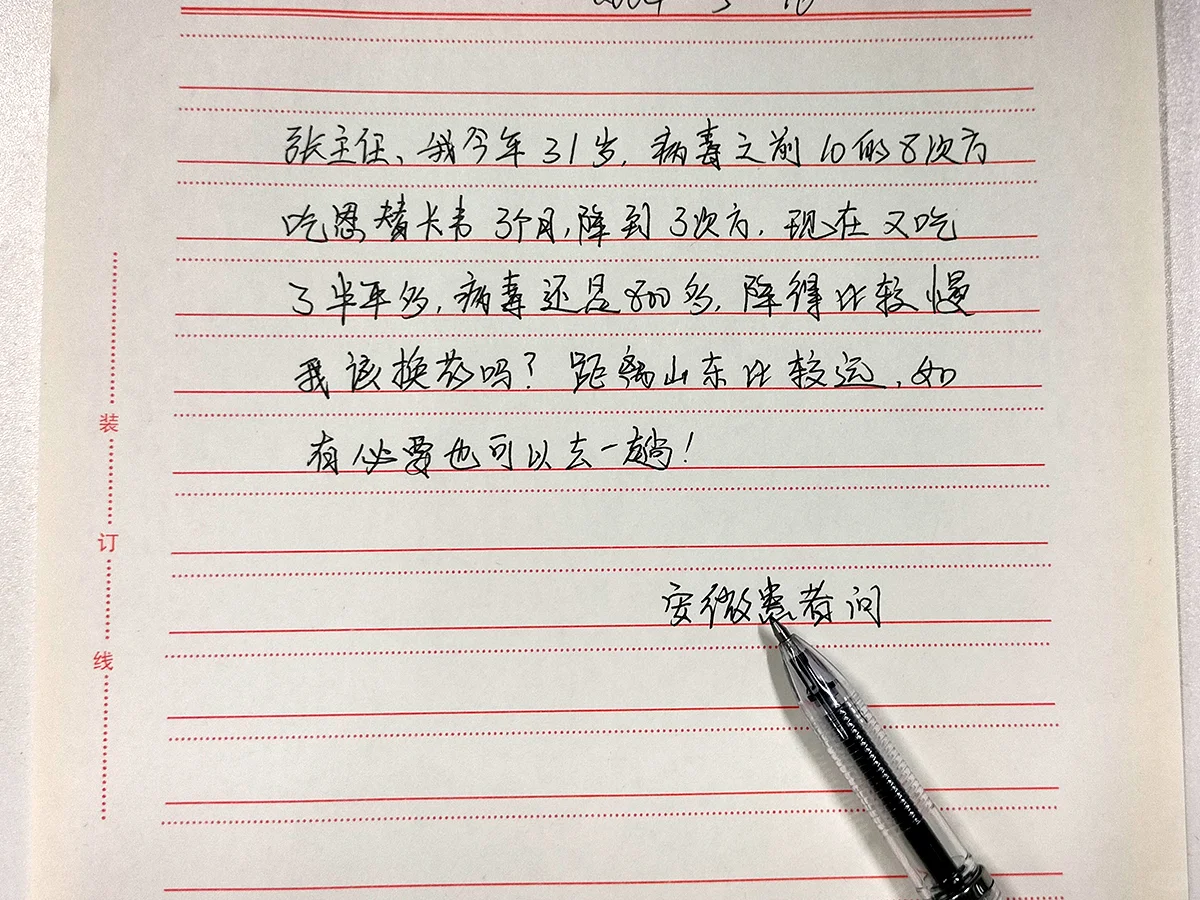 张主任、我今年31岁，病毒之前10的8次方
吃恩替卡韦3个月，降到3次方，现在又吃
了半年多，病毒还是800多，降得比较慢
我该换药吗？距离山东比较远，如
有必要也可以去一趟！
安徽患者问
装
订
线